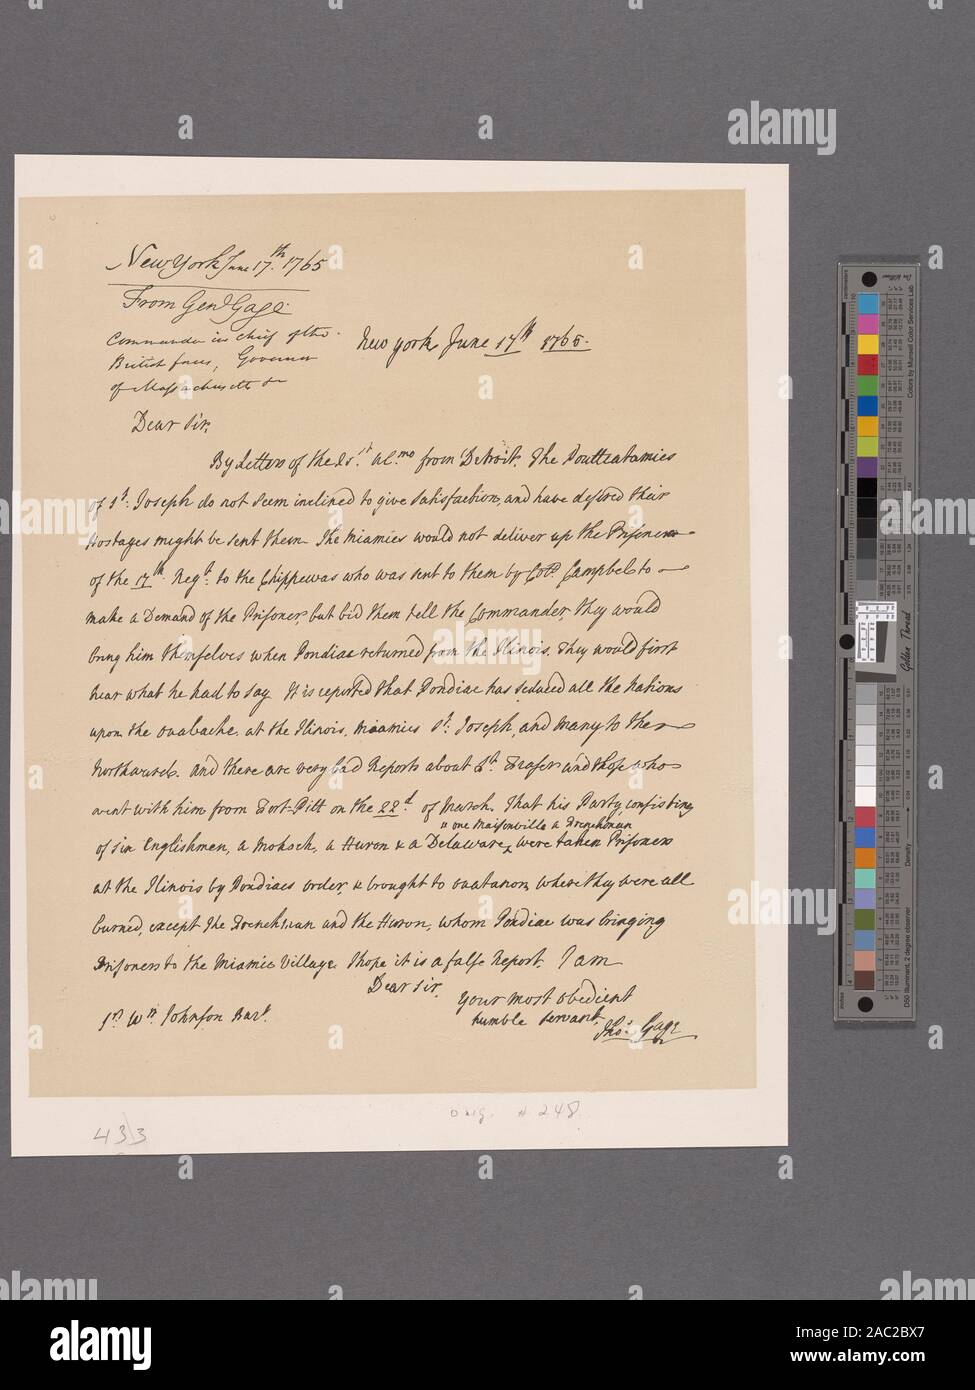 New York June 17.th 1765
From Genl. Gage.
Commander in chief of the
British forces, Governor
of Massachusetts &c
New york June 17th 1765.
Dear Sir,
By Letters of the 21st. Ulto. from Detroit. The Poutteatamies
of St. Joseph do not seem inclined to give satisfaction, and have desired their
Hostages might be sent them. The Miamies would not deliver up the Prisoner
of the 17th Regt. to the Chippewas who was sent to them by Coll. Campbel to
make a Demand of the Prisoner, but bid them tell the Commander, they would
bring him themselves when Pondiac returned from the Ilinois. They would first
hear what he had to say. It is reported that Pondiac has seduced all the Nations
upon the Ouabache, at the Ilinois, Miamies St. Joseph, and many to the
Northward. And there are very bad Reports about Lt. Fraser and those who
went with him from Fort-Pitt on the 22d of March. That his Party, consisting
& one Maisonville a Frenchman
of six Englishmen, a Mohock, a Huron & a Delaware, were taken Prisoners
at the Ilinois by Pondiacs order, & brought to Ouatanon where they were all
burned, except the Frenchman and the Huron, whom Pondiac was bringing
Prisoners to the Miamie Village. I hope it is a false Report. I am
Dear Sir,
Your most obedient
humble Servant,
Thos. Gage
Sr. Wm. Johnson Bart.
433
orig. # 248
Colors by Munsell Color Services Lab
Golden Thread
Density
D50 Illuminant, 2 degree observer
inches
alamy
a
alamy
Image ID: 2AC2BX7
www.alamy.com